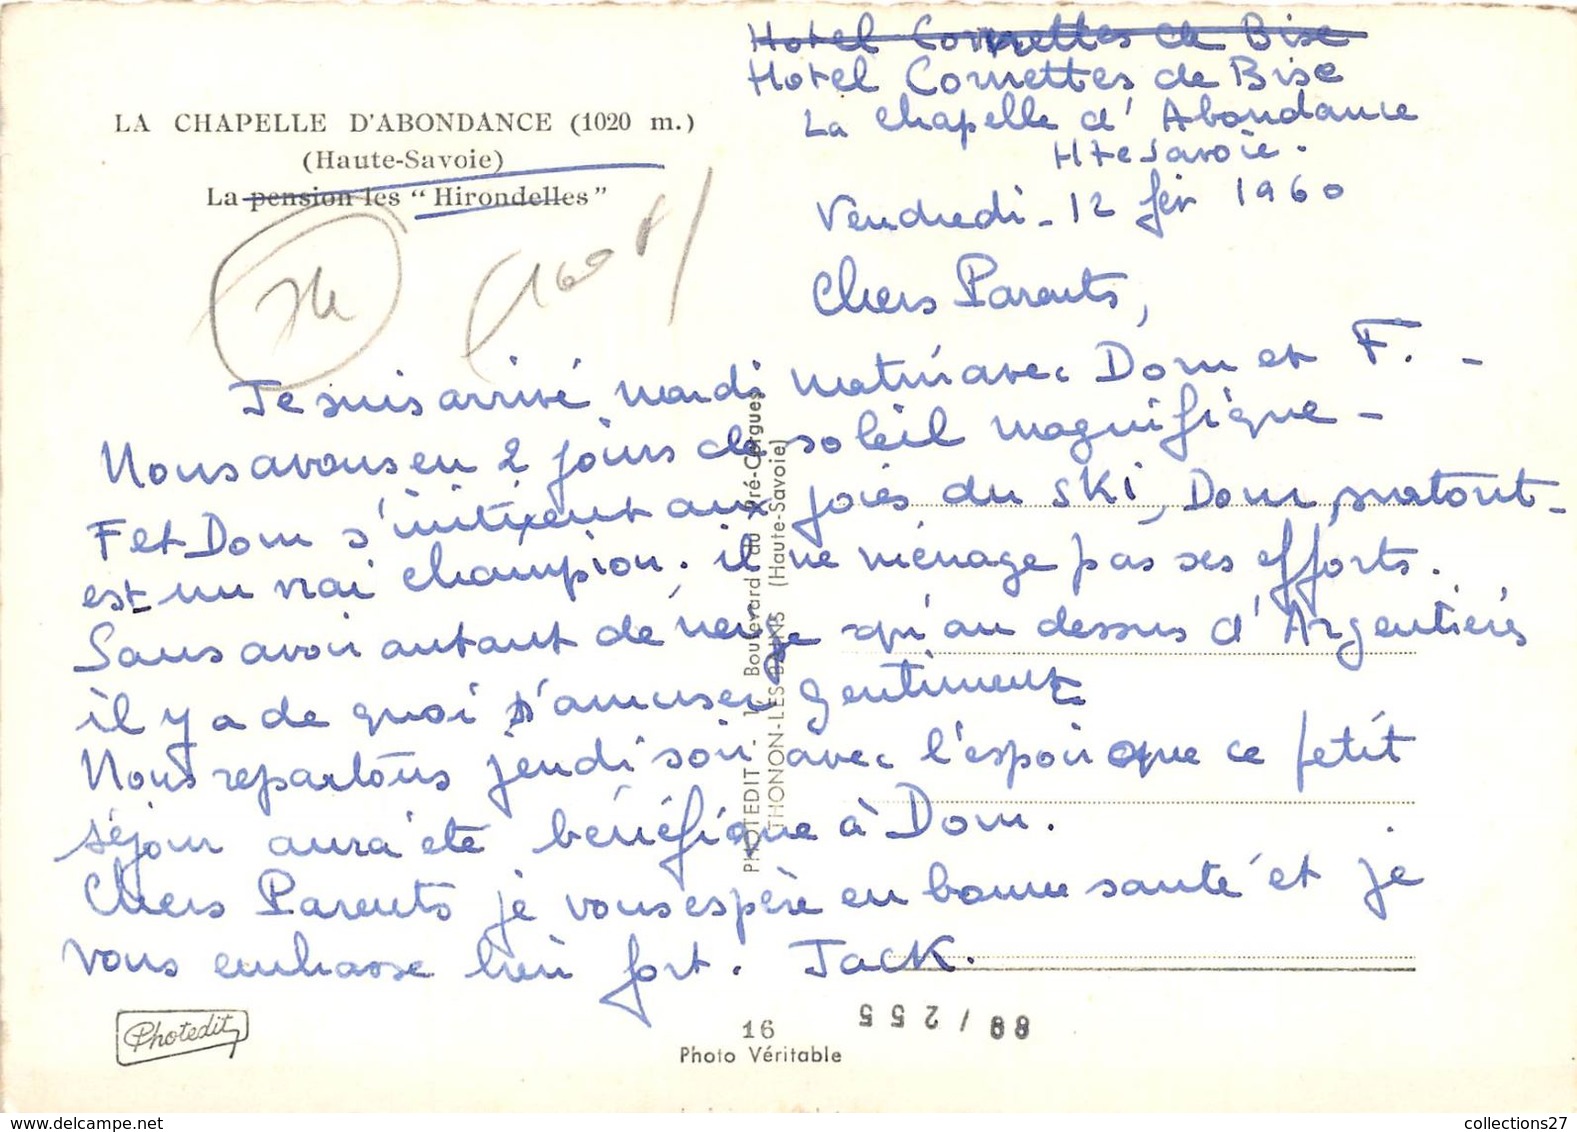 Hotel Cornettes de Bise
Hotel Cornettes de Bise
La Chapelle d'Abondance
Hte Savoie.
Vendredi - 12 fév 1960
LA CHAPELLE D'ABONDANCE (1020 m.)
(Haute-Savoie)
La pension les "Hirondelles"
Chers Parents,
Je suis arrivé mardi matin avec Dom et F. -
Nous avons eu 2 jours de soleil magnifique -
F et Dom s'initient aux joies du ski, Dom surtout -
est un vrai champion. il ne ménage pas ses efforts.
Sans avoir autant de neige qu'au dessus d'Argentières
il y a de quoi s'amuser gentiment
Nous repartons jeudi soir avec l'espoir que ce petit
séjour aura été bénéfique à Dom.
Chers Parents je vous espère en bonne santé et je
vous embrasse bien fort. Jack.
PHOTEDIT - 1, Boulevard du Pré-Cergues
THONON-LES-BAINS (Haute-Savoie)
Photedit
16
Photo Véritable
88 / 255
collections27